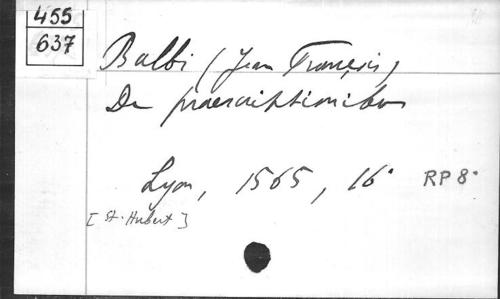 455
637
Balbi (Jean François)
De praescriptionibus
Lyon, 1565, 16° RP 8°
[St. Hubert]